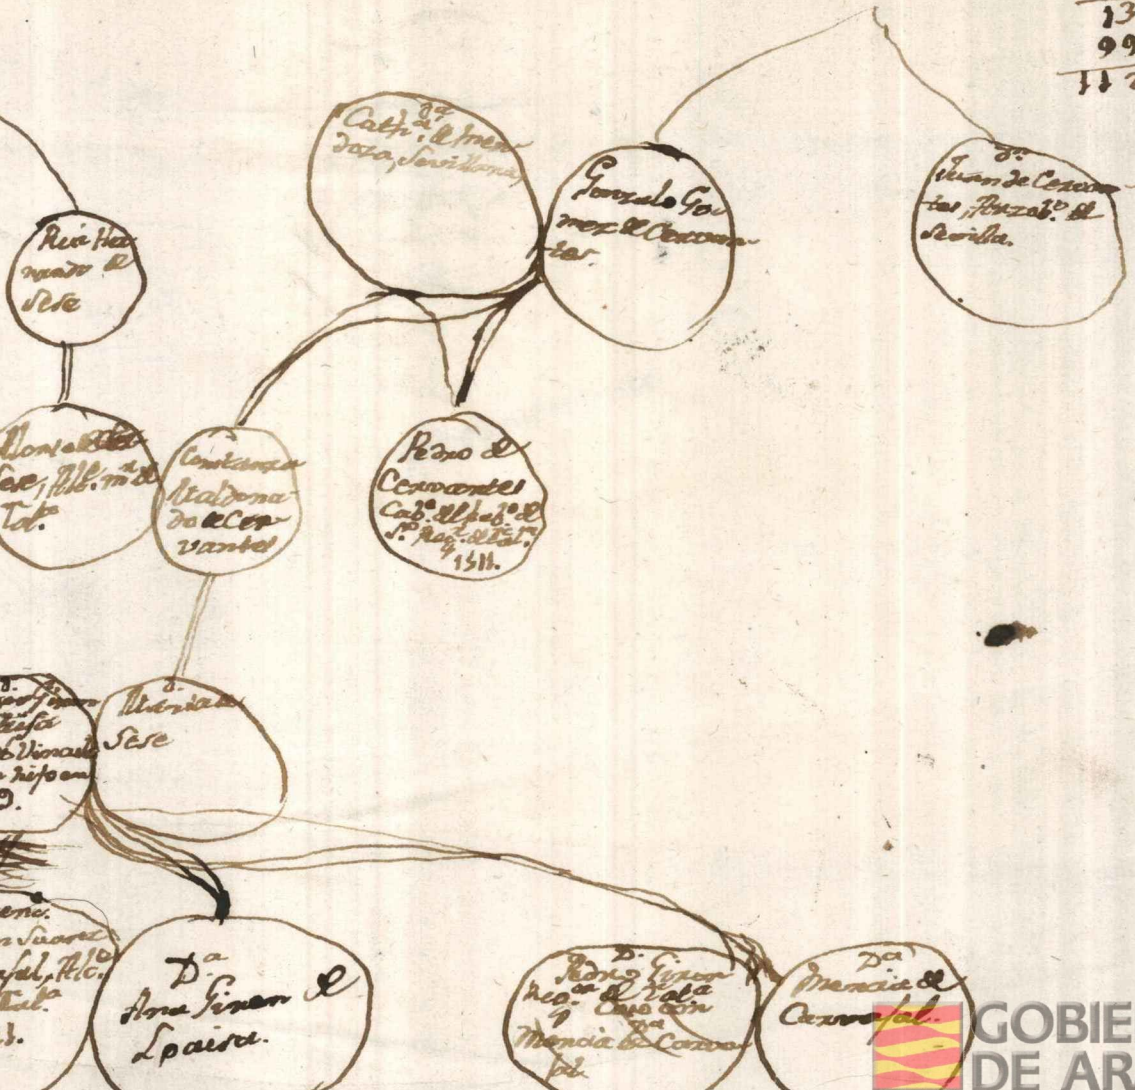 13
99
112
Da.
Catha. de Men-
doza, Sevillana,
Gonzalo Go-
mez de Cervan-
tes
Dn.
Juan de Cervan-
tes, Arzobo. de
Sevilla.
Rui Her-
nando de
Sese
Sese, Alc. mr. de
Tala.
Constanza
Maldona-
do de Cer-
vantes
Pedro de
Cervantes
Cabo. del habo. de
So. Regr. de Tala.
1511.
Da.
Maria de
Sese
hijo en
Suarez
Tala.
Da.
Ana Giron de
Loaisa.
D.
Pedro Giron
Regor. de Tala.
q casó con
Da.
Mencia de Carva-
jal
Da.
Mencia de
Carvajal.
GOBIE
DE AR